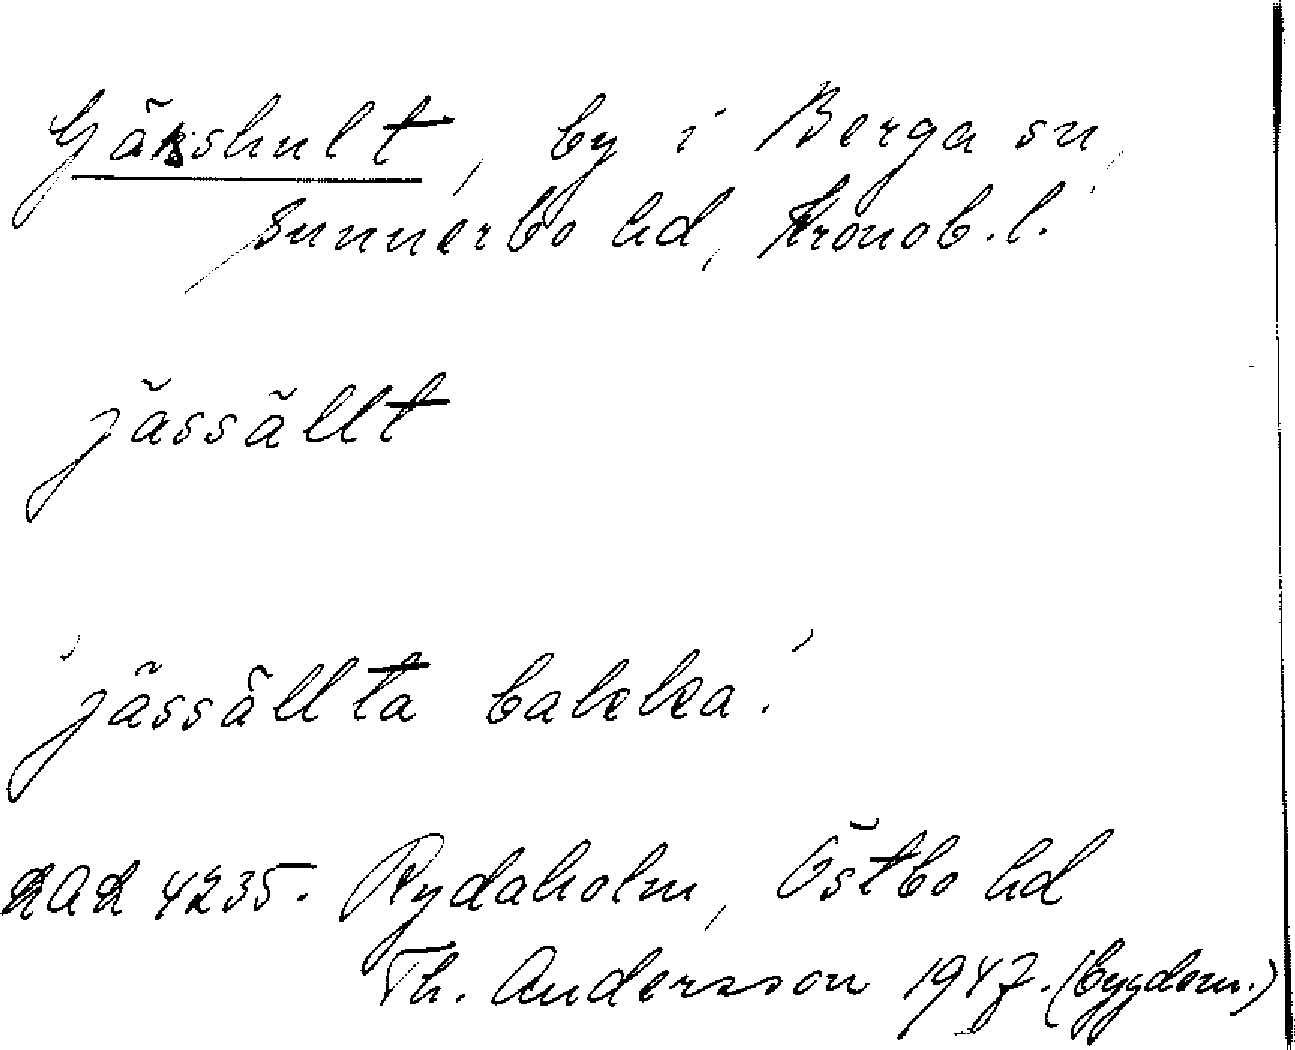 Gässhult, by i Berga sn,
Sunnerbo hd, Kronob. l.
jässällt
'jässällta bakka.'
4235. Rydaholm, Östbo hd
Th. Andersson 1947. (bygdem.)